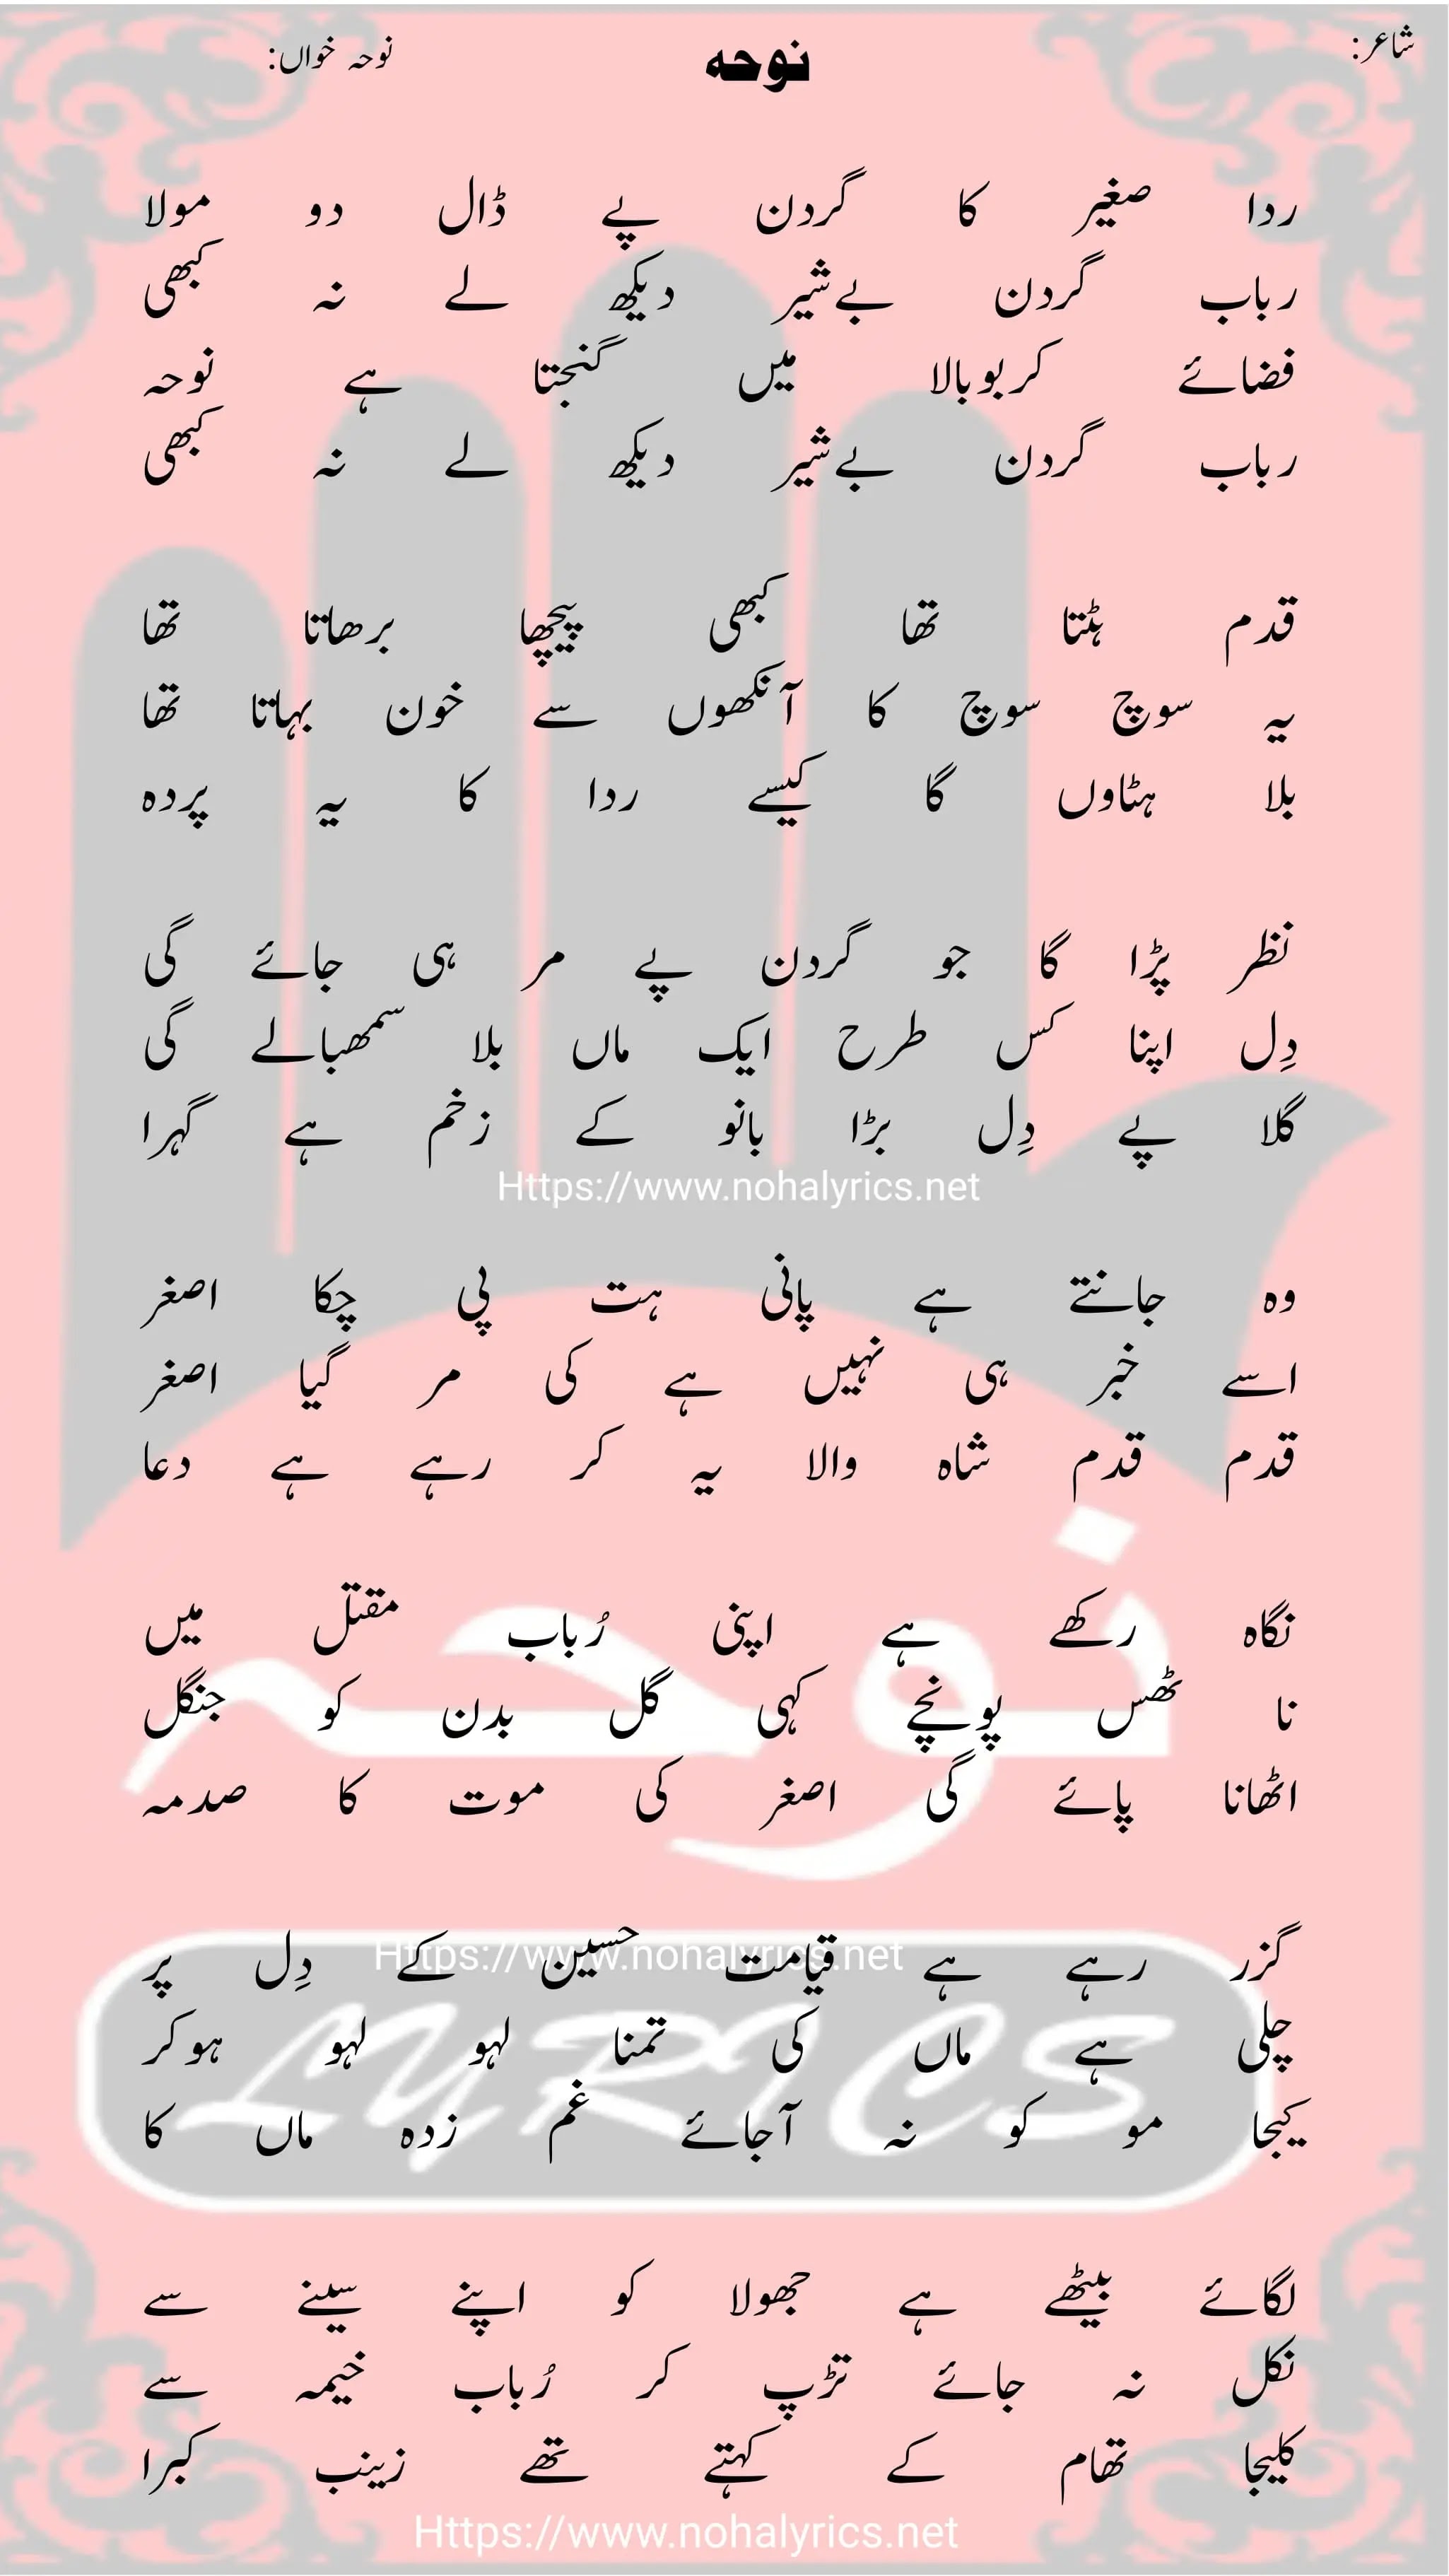 شاعر:
نوحہ
نوحہ خواں:
ردا صغیر کا گردن پے ڈال دو مولا
رباب گردن بےشیر دیکھ لے نہ کبھی
فضائے کربوبالا میں گنجتا ہے نوحہ
رباب گردن بےشیر دیکھ لے نہ کبھی
قدم ہٹتا تھا کبھی پیچھا برھاتا تھا
یہ سوچ سوچ کا آنکھوں سے خون بہاتا تھا
بلا ہٹاوں گا کیسے ردا کا یہ پردہ
نظر پڑا گا جو گردن پے مر ہی جائے گی
دِل اپنا کس طرح ایک ماں بلا سمھبالے گی
گلا پے دِل بڑا بانو کے زخم ہے گہرا
Https://www.nohalyrics.net
وہ جانتے ہے پانی ہت پی چکا اصغر
اسے خبر ہی نہیں ہے کی مر گیا اصغر
قدم قدم شاہ والا یہ کر رہے ہے دعا
نگاہ رکھے ہے اپنی رُباب مقتل میں
نا ٹھس پونچے کہی گل بدن کو جنگل
اٹھانا پائے گی اصغر کی موت کا صدمہ
نوحہ
گزر رہے ہے قیامت حسین کے دِل پر
Https://www.nohalyrics.net
چلی ہے ماں کی تمنا لہو لہو ہوکر
LYRICS
کیجا مو کو نہ آجائے غم زدہ ماں کا
لگائے بیٹھے ہے جھولا کو اپنے سینے سے
نکل نہ جائے تڑپ کر رُباب خیمہ سے
کلیجا تھام کے کہتے تھے زینب کبرا
Https://www.nohalyrics.net